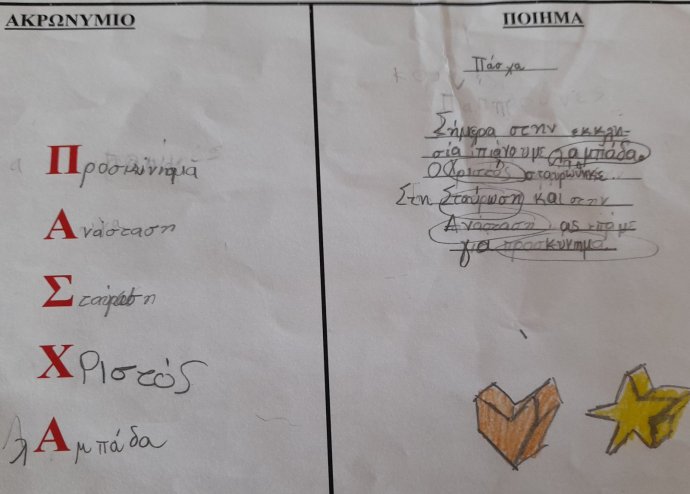 ΑΚΡΩΝΥΜΙΟ
Προσκύνημα
Ανάσταση
Σταύρωση
Χριστός
λΑμπάδα
ΠΟΙΗΜΑ
Πάσχα
Σήμερα στην εκκλη-
σία πιάνουμε λαμπάδα.
Ο Χριστός σταυρώθηκε
Στη Σταύρωση και στην
Ανάσταση ας πάμε
για προσκύνημα.